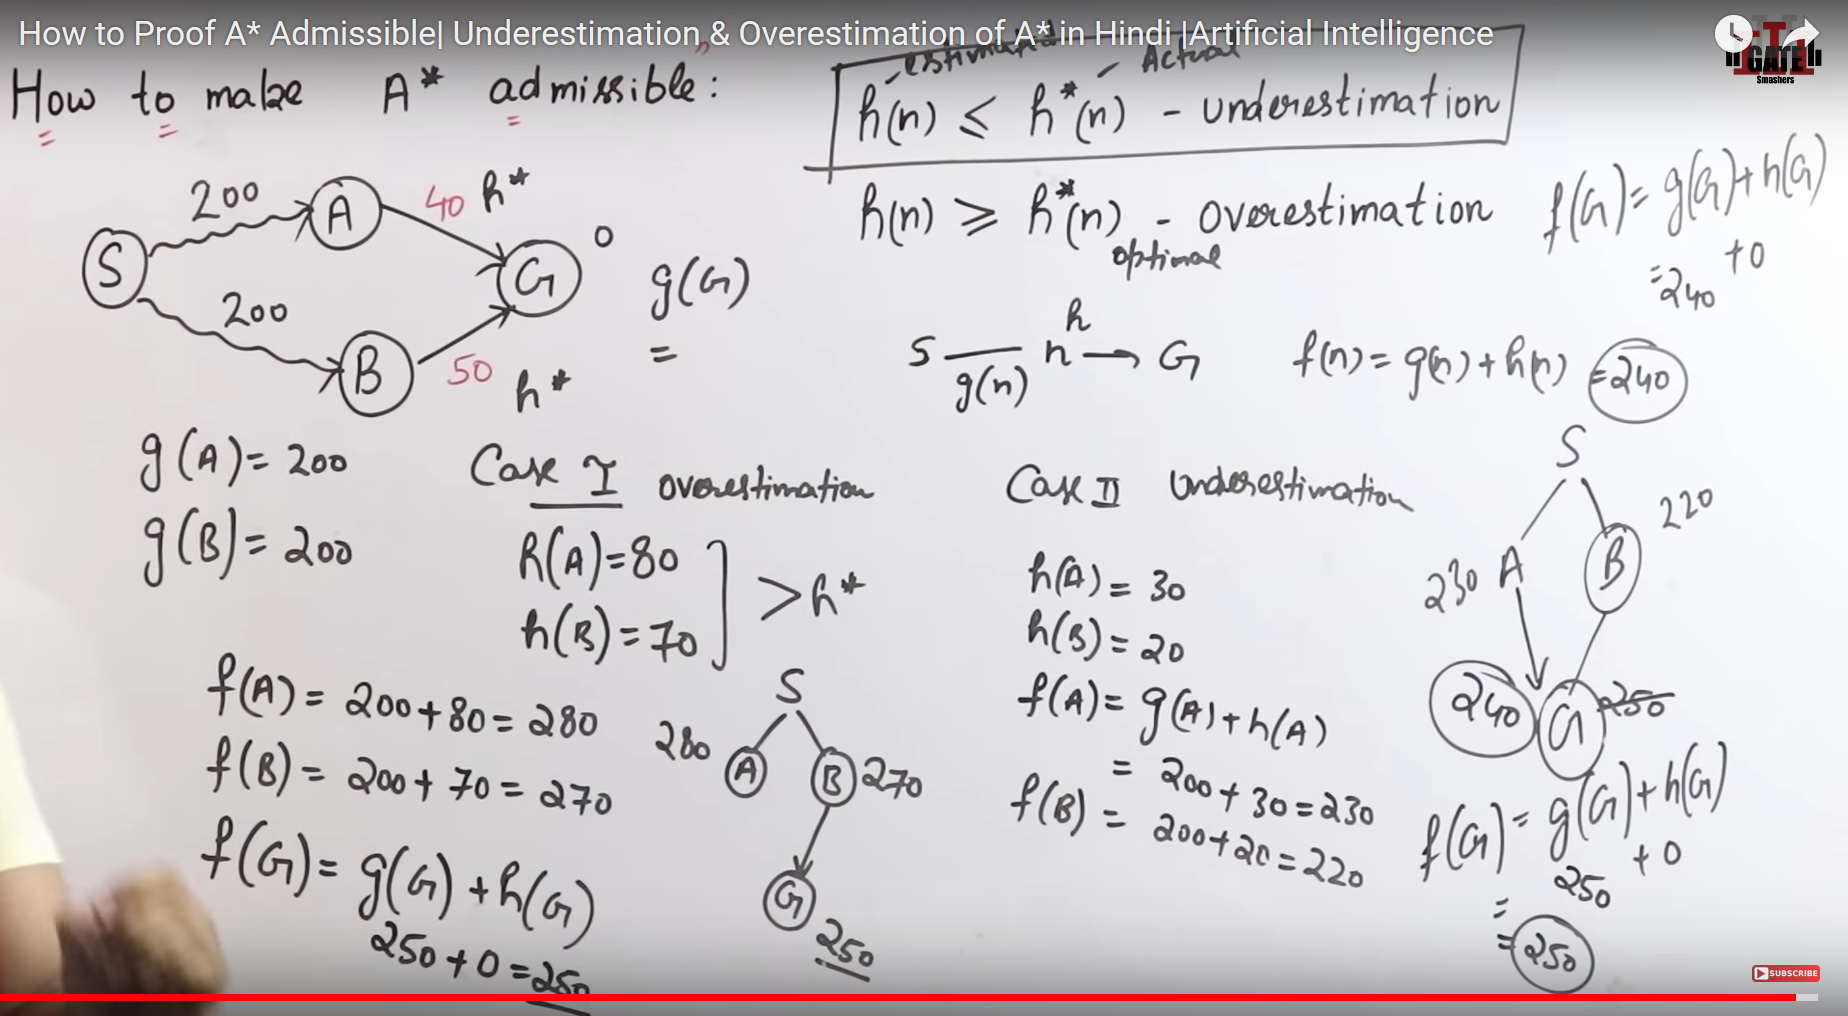 How to Proof A* Admissible| Underestimation & Overestimation of A* in Hindi |Artificial Intelligence
GATE
Smashers
How to make A* admissible:
estimated
Actual
h(n) ≤ h*(n) - underestimation
h(n) ≥ h*(n) - overestimation
optimal
f(G) = g(G) + h(G)
= 240 + 0
200
A
40 h*
S
G
0
g(G)
=
200
B
50 h*
S
g(n)
n
h
G
f(n) = g(n) + h(n) = 240
g(A) = 200
g(B) = 200
Case I overestimation
h(A) = 80
h(B) = 70
> h*
f(A) = 200 + 80 = 280
f(B) = 200 + 70 = 270
f(G) = g(G) + h(G)
250 + 0 = 250
S
280
A
B
270
G
250
Case II Underestimation
h(A) = 30
h(B) = 20
f(A) = g(A) + h(A)
= 200 + 30 = 230
f(B) = 200 + 20 = 220
S
220
230
A
B
240
G
250
f(G) = g(G) + h(G)
250 + 0
=
= 250
SUBSCRIBE